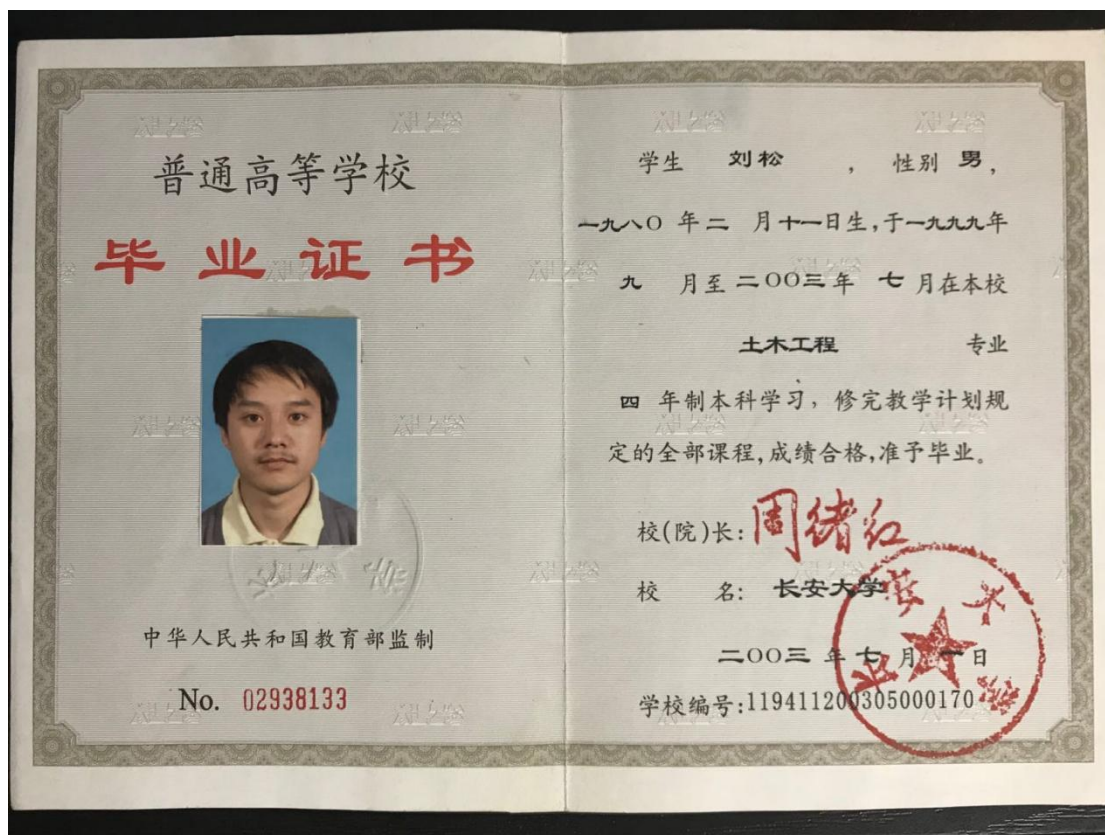 普通高等学校
毕业证书
中华人民共和国教育部监制
No. 02938133
学生 刘松 , 性别 男,
一九八〇 年 二 月 十一日生,于一九九九年
九 月至 二〇〇三年 七 月在本校
土木工程 专业
四 年制本科学习, 修完教学计划规
定的全部课程,成绩合格,准予毕业。
校(院)长: 周绪红
校 名: 长安大学
二〇〇三 年 七 月 一 日
学校编号:119411200305000170